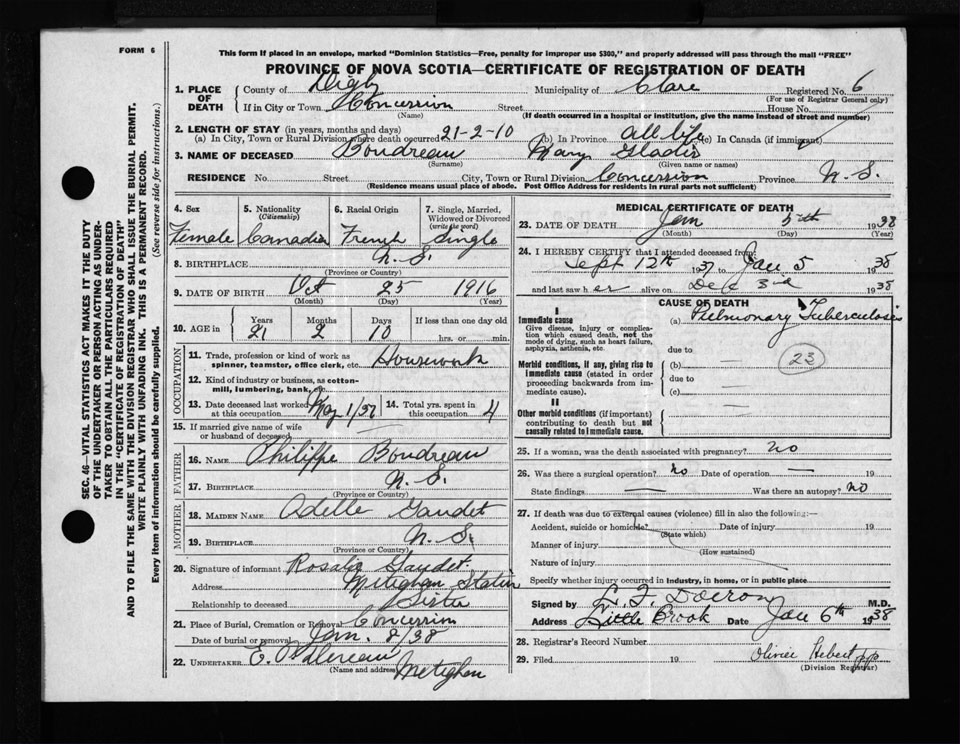 FORM 6
This form if placed in an envelope, marked "Dominion Statistics—Free, penalty for improper use $300," and properly addressed will pass through the mail "FREE"
PROVINCE OF NOVA SCOTIA—CERTIFICATE OF REGISTRATION OF DEATH
SEC. 46—VITAL STATISTICS ACT MAKES IT THE DUTY
OF THE UNDERTAKER OR PERSON ACTING AS UNDER-
TAKER TO OBTAIN ALL THE PARTICULARS REQUIRED
IN THE "CERTIFICATE OF REGISTRATION OF DEATH"
AND TO FILE THE SAME WITH THE DIVISION REGISTRAR WHO SHALL ISSUE THE BURIAL PERMIT.
WRITE PLAINLY WITH UNFADING INK. THIS IS A PERMANENT RECORD.
Every item of information should be carefully supplied. (See reverse side for instructions.)
1. PLACE OF DEATH
County of Digby Municipality of Clare Registered No. 6
(For use of Registrar General only)
If in City or Town Concession Street House No.
(Name) (If death occurred in a hospital or institution, give the name instead of street and number)
2. LENGTH OF STAY (in years, months and days)
(a) In City, Town or Rural Division where death occurred 21-2-10 (b) In Province all life (c) In Canada (if immigrant)
3. NAME OF DECEASED Boudreau Mary Gladis
(Surname) (Given name or names)
RESIDENCE No. Street City, Town or Rural Division Concession Province N. S.
(Residence means usual place of abode. Post Office Address for residents in rural parts not sufficient)
4. Sex 5. Nationality (Citizenship) 6. Racial Origin 7. Single, Married, Widowed or Divorced (write the word)
Female Canadian French Single
8. BIRTHPLACE N. S.
(Province or Country)
9. DATE OF BIRTH Oct 25 1916
(Month) (Day) (Year)
10. AGE in Years Months Days If less than one day old
21 2 10 hrs. or min.
OCCUPATION
11. Trade, profession or kind of work as spinner, teamster, office clerk, etc. Housework
12. Kind of industry or business, as cotton-mill, lumbering, bank, etc.
13. Date deceased last worked at this occupation May 1/37 14. Total yrs. spent in this occupation 4
15. If married give name of wife or husband of deceased
FATHER
16. NAME Philippe Boudreau
17. BIRTHPLACE N. S.
(Province or Country)
MOTHER
18. MAIDEN NAME Adelle Gaudet
19. BIRTHPLACE N. S.
(Province or Country)
20. Signature of informant Rosalie Gaudet
Address Meteghan Station
Relationship to deceased Sister
21. Place of Burial, Cremation or Removal Concession
Date of burial or removal Jan. 8/38
22. UNDERTAKER E.
(Name and address) Meteghan
MEDICAL CERTIFICATE OF DEATH
23. DATE OF DEATH Jan 5th 1938
(Month) (Day) (Year)
24. I HEREBY CERTIFY that I attended deceased from
Sept 12th 1937 to Jan 5 1938
and last saw her alive on Dec 3rd 1938
CAUSE OF DEATH
I
Immediate cause (a) Pulmonary Tuberculosis
Give disease, injury or complication which caused death, not the mode of dying, such as heart failure, asphyxia, asthenia, etc.
due to
Morbid conditions, if any, giving rise to immediate cause (stated in order proceeding backwards from immediate cause).
(b) 23
due to
(c)
II
Other morbid conditions (if important) contributing to death but not causally related to immediate cause.
25. If a woman, was the death associated with pregnancy? no
26. Was there a surgical operation? no Date of operation — 19
State findings — Was there an autopsy? no
27. If death was due to external causes (violence) fill in also the following:—
Accident, suicide or homicide? Date of injury 19
(State which)
Manner of injury
(How sustained)
Nature of injury
Specify whether injury occurred in industry, in home, or in public place
Signed by Doiron M.D.
Address Little Brook Date Jan 6th 1938
28. Registrar's Record Number
29. Filed 19 Olivier Hebert
(Division Registrar)